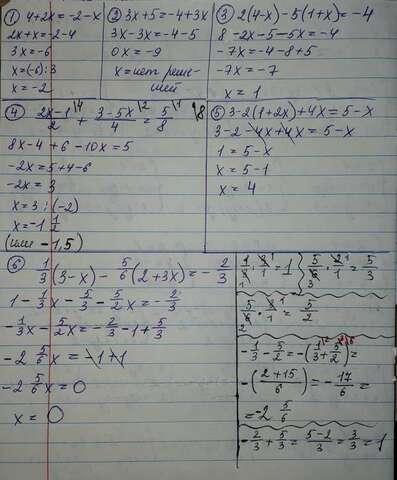 ① 4+2x=-2-x
2x+x=-2-4
3x=-6
x=(-6):3
x=-2
② 3x+5=-4+3x
3x-3x=-4-5
0x=-9
x=нет реше-
ний
③ 2(4-x)-5(1+x)=-4
8-2x-5-5x=-4
-7x=-4-8+5
-7x=-7
x=1
④ (2x-1)/2 \4 + (3-5x)/4 \2 = 5/8 \1 \8
8x-4+6-10x=5
-2x=5+4-6
-2x=3
x=3:(-2)
x=-1 1/2
(или -1,5)
⑤ 3-2(1+2x)+4x=5-x
3-2-4x+4x=5-x
1=5-x
x=5-1
x=4
⑥ 1/3(3-x)-5/6(2+3x)=-2/3
1-1/3x-5/3-5/2x=-2/3
-1/3x-5/2x=-2/3-1+5/3
-2 5/6x=-1+1
-2 5/6x=0
x=0
1/3·3/1=1
5/6·2/1=5/3
5/6·3/1=5/2
-1/3-5/2=-(1/3+5/2)=
-((2+15)/6)=-17/6=
=-2 5/6
-2/3+5/3=(5-2)/3=3/3=1